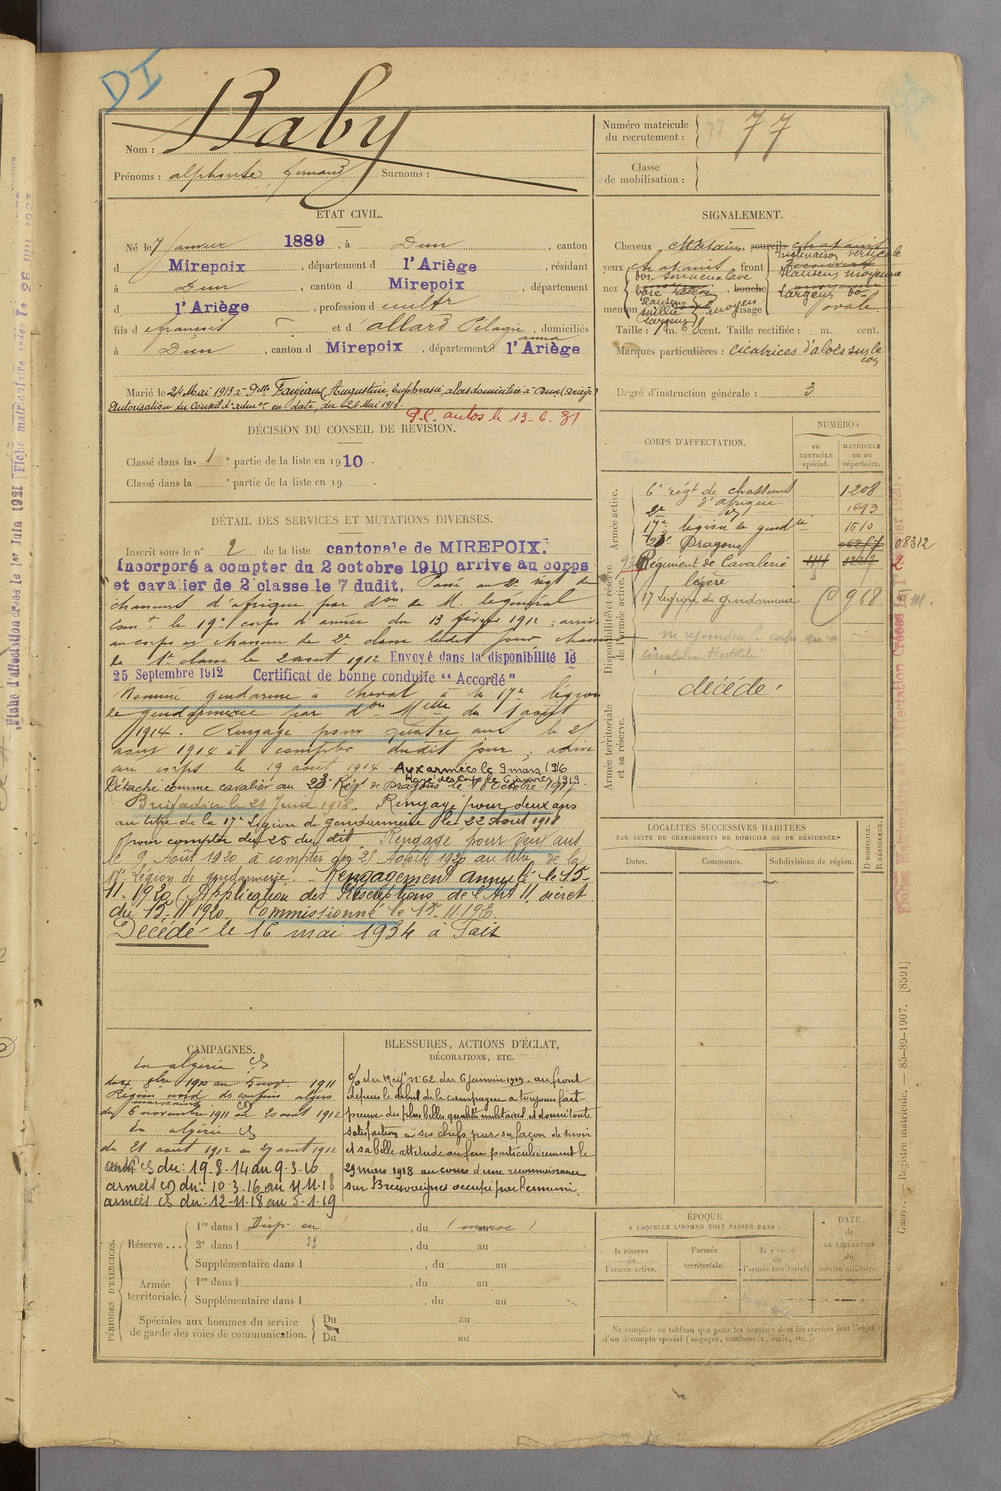 DI
Baby
Nom :
Prénoms : alphonse fernand Surnoms :
Numéro matricule
du recrutement : 77
Classe
de mobilisation :
ETAT CIVIL.
Né le 7 Janvier 1889, à Dun, canton
d Mirepoix, département d l'Ariège, résidant
à Dun, canton d Mirepoix, département
d l'Ariège, profession de cultr
fils d françois et d'allard Pélagie anna, domiciliés
à Dun, canton d Mirepoix, département d l'Ariège
Marié le 24 Mai 1913 à Delle Augustine, Euphrasie, alors domiciliée à Dun (Ariège)
Autorisation du Conseil d'admon en date du 24 Mai 1913.
P.C. autos le 13-6-31
SIGNALEMENT.
Cheveux châtains, sourcils châtains
yeux châtains, front inclinaison verticale
hauteur moyenne
nez dos base
bouche largeur
menton hauteur saillie largeur visage ovale
Taille : 1m. cent. Taille rectifiée : m. cent.
Marques particulières : cicatrices d'abcès sur le cou
Degré d'instruction générale : 3
DÉCISION DU CONSEIL DE RÉVISION.
Classé dans la 1e partie de la liste en 1910.
Classé dans la e partie de la liste en 19 .
CORPS D'AFFECTATION.
NUMÉROS
AU CONTRÔLE spécial.
MATRICULE ou au répertoire.
Armée active.
6e régt de chasseurs 1208
2e d'afrique 1893
17e légion de gendie 1510
23e Dragons 08312
Disponibilité et réserve de l'armée active.
Régiment de Cavalerie
légère
17 Légion de Gendarmerie 968
décédé.
Armée territoriale et sa réserve.
DÉTAIL DES SERVICES ET MUTATIONS DIVERSES.
Inscrit sous le n° 2 de la liste cantonale de MIREPOIX.
Incorporé a compter du 2 octobre 1910 arrive au corps
et cavalier de 2e classe le 7 dudit. Passé au 2e régt de
chasseurs d'afrique par don de M. le général
Comt le 19e corps d'armée du 13 février 1912 ; arrivé
au corps et chasseur de 2e classe ledit jour chasseur
de 1e classe le 2 aout 1912 Envoyé dans la disponibilité le
25 Septembre 1912 Certificat de bonne conduite "Accordé"
Nommé gendarme à cheval à la 17e légion
de gendarmerie par don Melle du 1 août
1914. Rengagé pour quatre ans le 25
août 1914 à compter dudit jour ; arrivé
au corps le 19 août 1914 Aux armées le 9 mars 1916
Rayé des corps le 6 janvier 1919
Détaché comme cavalier au 23e Régt de Dragons le 18 Octobre 1917
Brigadier le 21 Juin 1918. Rengagé pour deux ans
au titre de la 17e Légion de gendarmerie le 22 Août 1918
pour compter du 25 du dit Rengagé pour deux ans
le 9 Août 1920 à compter du 25 Août 1920 au titre de la
17e Légion de gendarmerie. Rengagement annulé le 15-
11-1920 (Application des Prescriptions de l'Art 11, décret
du 15-11-1920. Commissionné le 15-11-1920.
Décédé le 16 mai 1934 à
LOCALITÉS SUCCESSIVES HABITÉES
PAR SUITE DE CHANGEMENTS DE DOMICILE OU DE RÉSIDENCE.
Dates.
Communes.
Subdivisions de région.
D. DOMICILE.
R. RÉSIDENCE.
CAMPAGNES.
En algérie CS
du 4 8bre 1910 au 5 nov. 1911
Région nord des confins algéro
marocains CS
du 6 novembre 1911 au 20 août 1912
En algérie CS
du 21 aout 1912 au 27 aout 1912
CS du: 19.8.14 au 9.3.16
armées CD du: 10.3.16 au 11.11.18
armées CS du: 12-11.18 au 5.1.19
BLESSURES, ACTIONS D'ÉCLAT,
DÉCORATIONS, ETC.
C/O du Régt N°62 du 6 Janvier 1919. au front
depuis le début de la campagne a toujours fait
preuve des plus belles qualités militaires et donné toute
satisfaction à ses chefs par sa façon de servir
et sa belle attitude au feu particulièrement le
29 mars 1918 au cours d'une reconnaissance
sur occupé par l'ennemi.
PÉRIODES D'EXERCICES.
Réserve...
1re dans l Disp. en, du (maroc) au
2e dans l, du au
Supplémentaire dans l, du au
Armée territoriale.
1re dans l, du au
Supplémentaire dans l, du au
Spéciales aux hommes du service
de garde des voies de communication.
Du au
Du au
ÉPOQUE
A LAQUELLE L'HOMME DOIT PASSER DANS :
la réserve de l'armée active.
l'armée territoriale.
la réserve de l'armée territoriale
DATE
de
LA LIBÉRATION
du
service militaire.
Ne remplir ce tableau que pour les hommes dont les services font l'objet
d'un décompte spécial (engagés, condamnés, omis, etc.).
Guerre. — Registre matricule. — 85-89-1907. [8591]
Fiche d'affectation créée le 1er Juin 1921